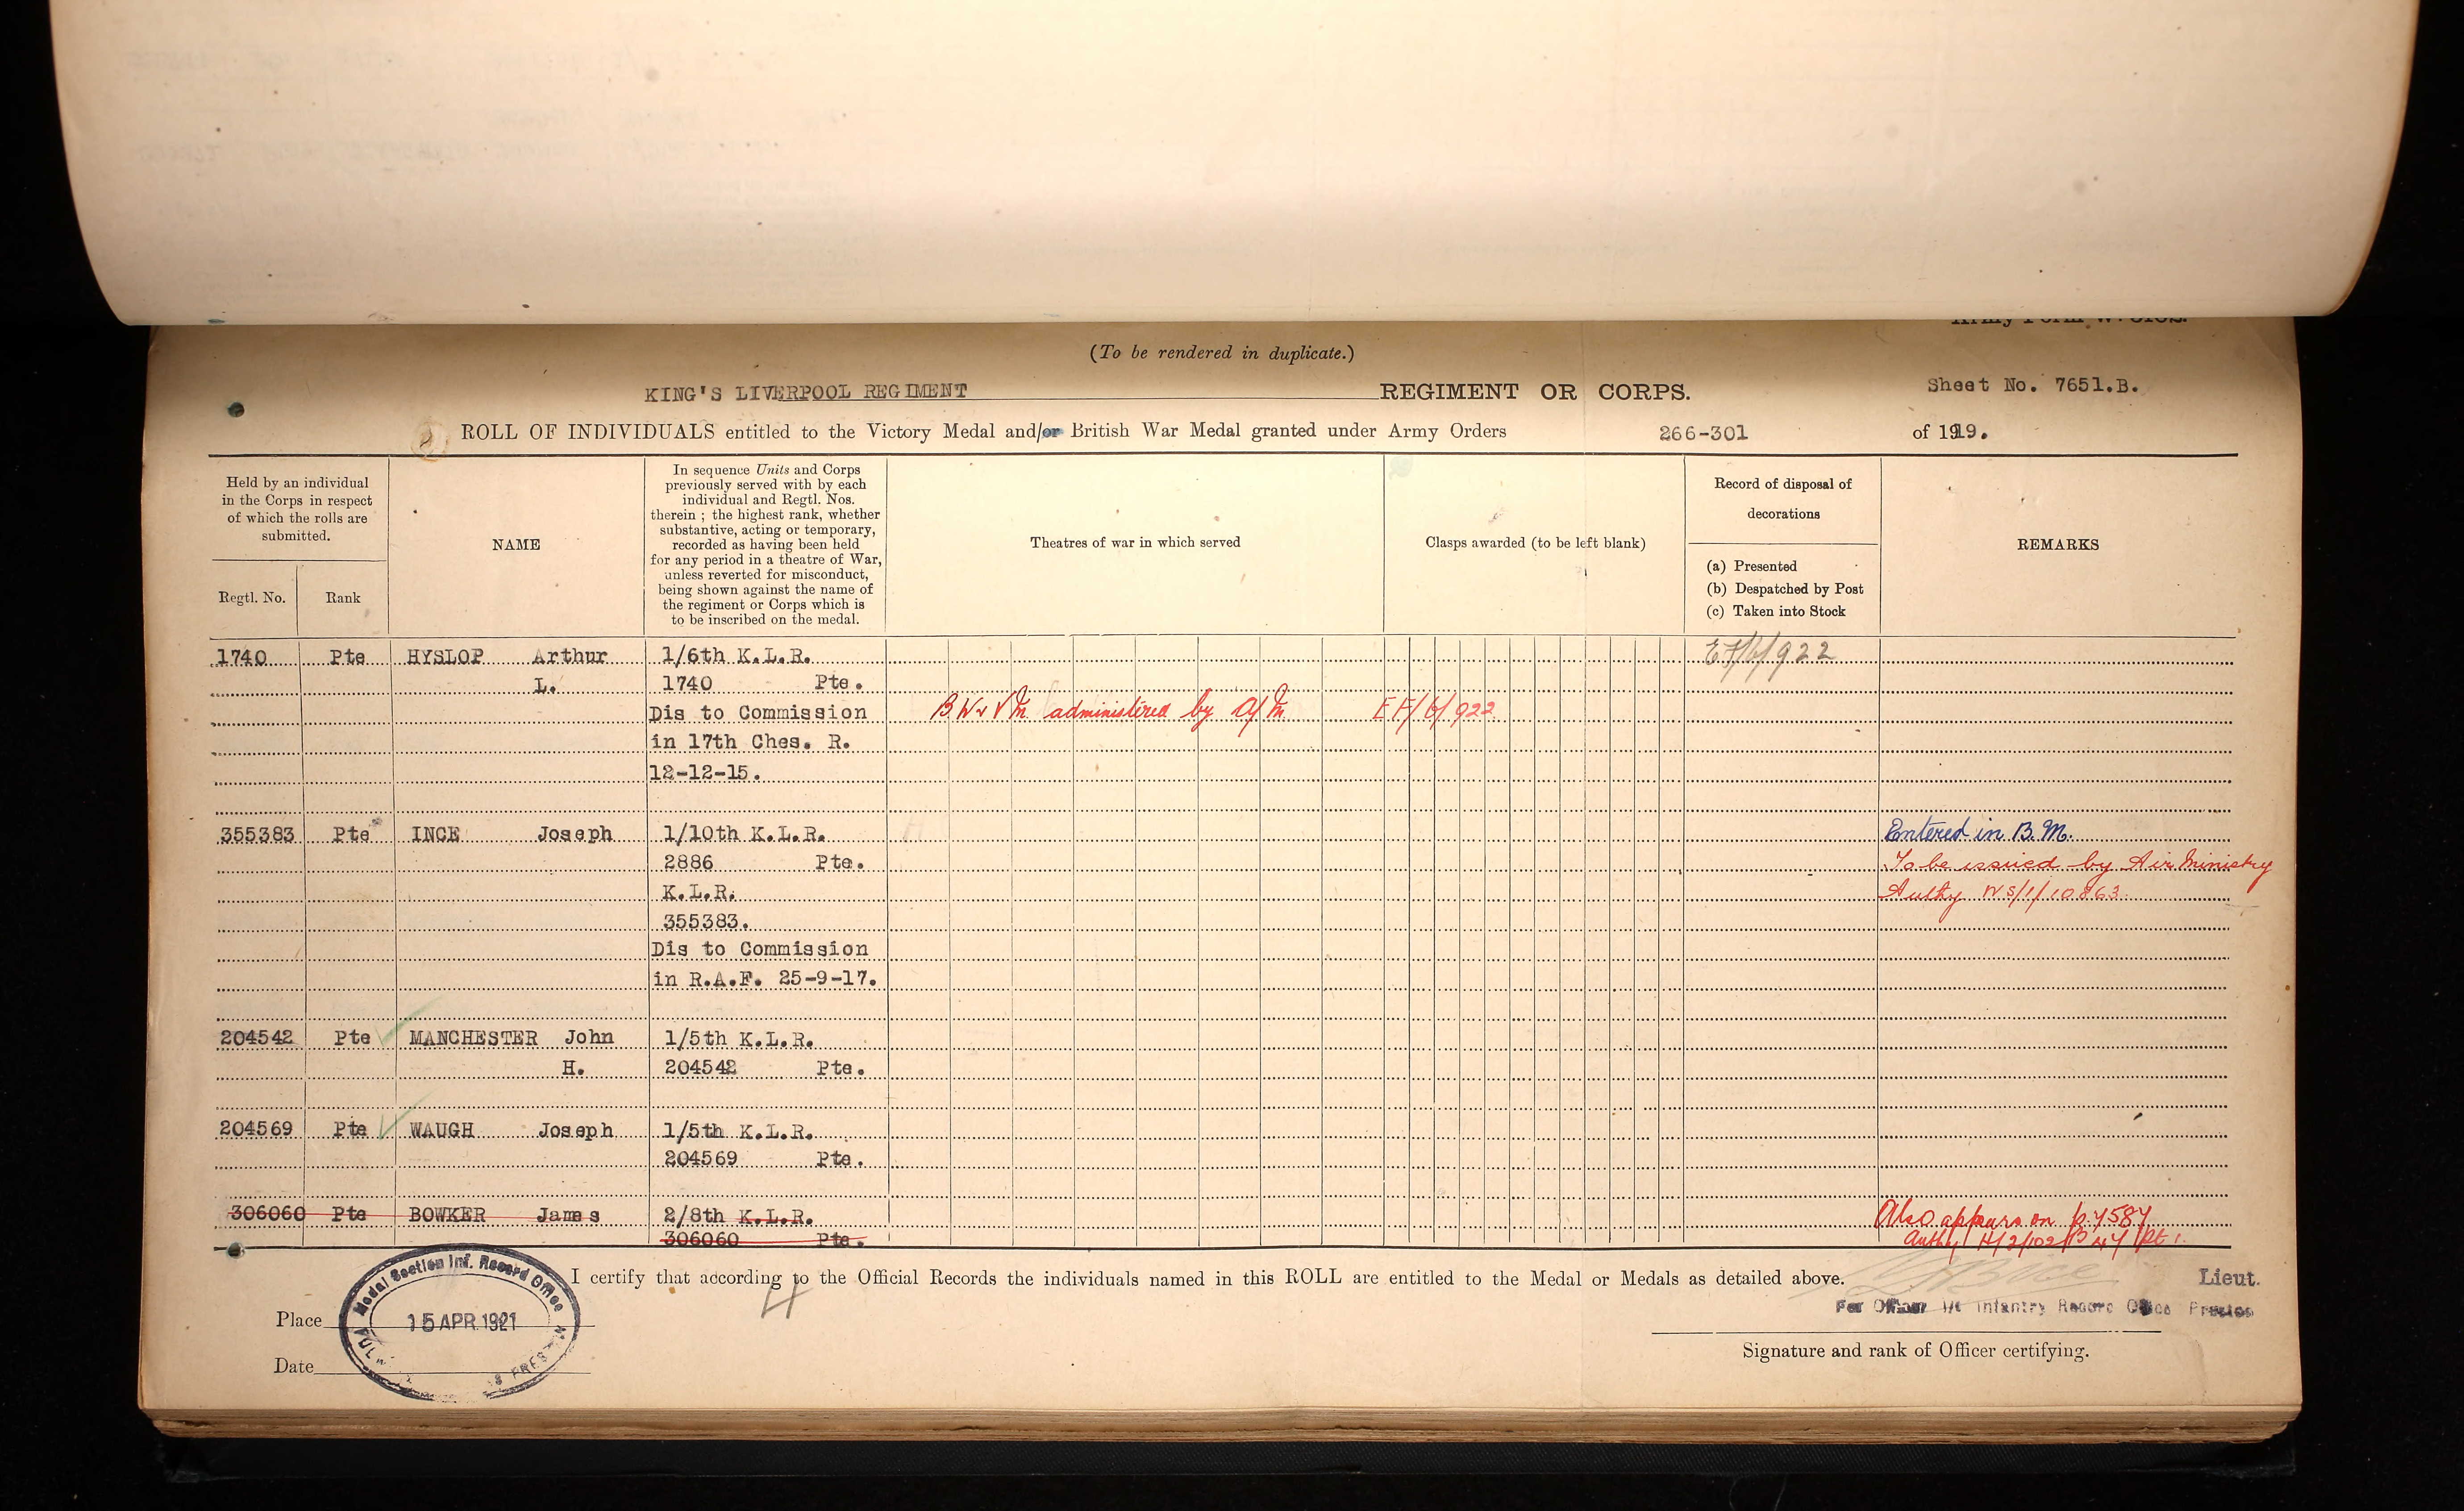 (To be rendered in duplicate.)
KING'S LIVERPOOL REGIMENT REGIMENT OR CORPS. Sheet No. 7651.B.
ROLL OF INDIVIDUALS entitled to the Victory Medal and/or British War Medal granted under Army Orders 266-301 of 1919.
Held by an individual
in the Corps in respect
of which the rolls are
submitted.
Regtl. No.
Rank
NAME
In sequence Units and Corps
previously served with by each
individual and Regtl. Nos.
therein ; the highest rank, whether
substantive, acting or temporary,
recorded as having been held
for any period in a theatre of War,
unless reverted for misconduct,
being shown against the name of
the regiment or Corps which is
to be inscribed on the medal.
Theatres of war in which served
Clasps awarded (to be left blank)
Record of disposal of
decorations
(a) Presented
(b) Despatched by Post
(c) Taken into Stock
REMARKS
1740 Pte HYSLOP Arthur 1/6th K.L.R. EF/6/922
L. 1740 Pte.
Dis to Commission B.W & V M administered by O/M EF/6/922
in 17th Ches. R.
12-12-15.
355383 Pte INCE Joseph 1/10th K.L.R. Entered in B.M.
2886 Pte. To be issued by Air Ministry
K.L.R. Authy NS/1/10863
355383.
Dis to Commission
in R.A.F. 25-9-17.
204542 Pte MANCHESTER John 1/5th K.L.R.
H. 204542 Pte.
204569 Pte WAUGH Joseph 1/5th K.L.R.
204569 Pte.
306060 Pte BOWKER James 2/8th K.L.R. Also appears on p. 7587
306060 Pte. Authy H/2/102
I certify that according to the Official Records the individuals named in this ROLL are entitled to the Medal or Medals as detailed above.
Lieut.
For Officer i/c Infantry Record Office Preston
Place
Medal Section Inf. Record Office
15 APR 1921
Date
Signature and rank of Officer certifying.